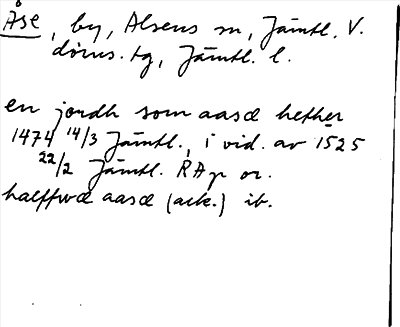 Åse, by, Alsens sn, Jämtl. V.
doms. tg, Jämtl. l.
en jordh som aasæ hether
1474 14/3 Jämtl., i vid. av 1525
22/2 Jämtl. RAp or.
halffwæ aasæ (ack.) ib.